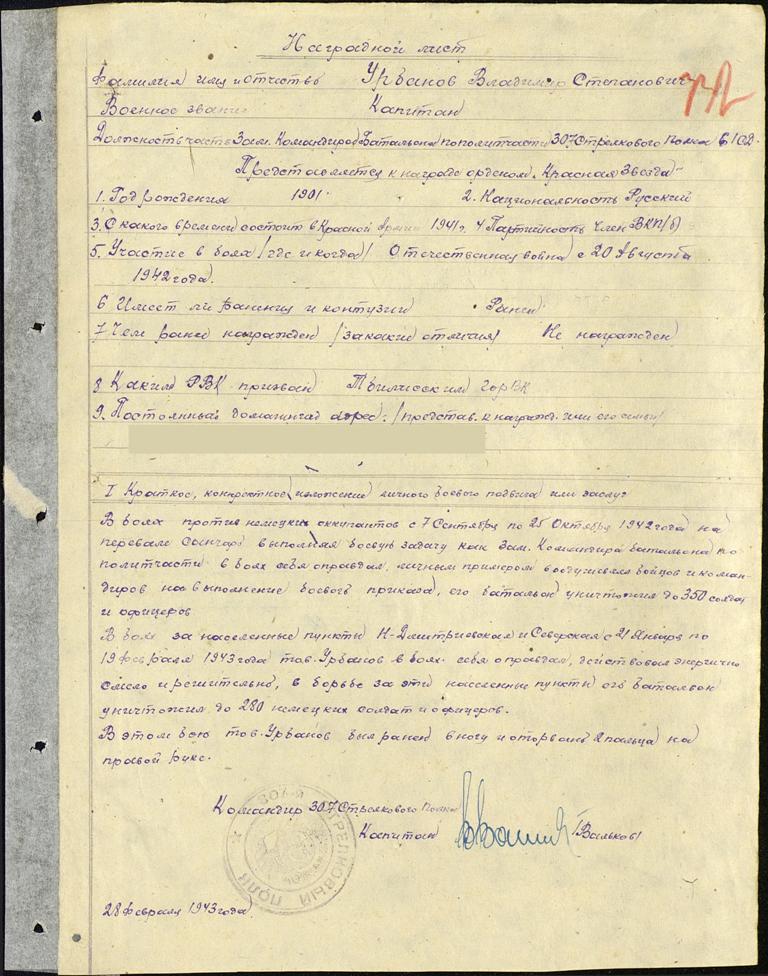 Наградной лист
Фамилия имя и отчество Урбанов Владимир Степанович
Военное звание Капитан
Должность часть Зам. Командира Батальона по политчасти 307 Стрелкового Полка 61 СД.
Представляется к награде орденом "Красная Звезда"
1. Год рождения 1901. 2. Национальность Русский
3. С какого времени состоит в Красной Армии 1941г. 4 Партийность Член ВКП/б/
5. Участие в боях /где и когда/ Отечественная война с 20 Августа
1942 года.
6 Имеет ли ранения и контузии Ранен
7 Чем ранее награжден /за какие отличия/ Не награжден
8 Каким РВК призван Тбилисским ГорВК
9. Постоянный домашний адрес: /представ. к награжд. или его семьи/
I Краткое, конкретное изложение личного боевого подвига или заслуг
В боях против немецких оккупантов с 7 Сентября по 25 Октября 1942 года на
перевале Санчаро выполняя боевую задачу как Зам. Командира батальона по
политчасти в боях себя оправдал, личным примером воодушевлял бойцов и коман-
диров на выполнение боевого приказа, его батальон уничтожил до 350 солдат
и офицеров
В боях за населенные пункты Н-Дмитриевская и Северская с 21 Января по
19 февраля 1943 года тов. Урбанов в боях себя оправдал, действовал энергично
смело и решительно, в борьбе за эти населенные пункты его батальон
уничтожил до 280 немецких солдат и офицеров.
В этом бою тов. Урбанов был ранен в ногу и оторвань 2 пальца на
правой руке.
Командир 307 Стрелкового Полка
Капитан /Вальков/
307-й СТРЕЛКОВЫЙ ПОЛК
28 февраля 1943 года